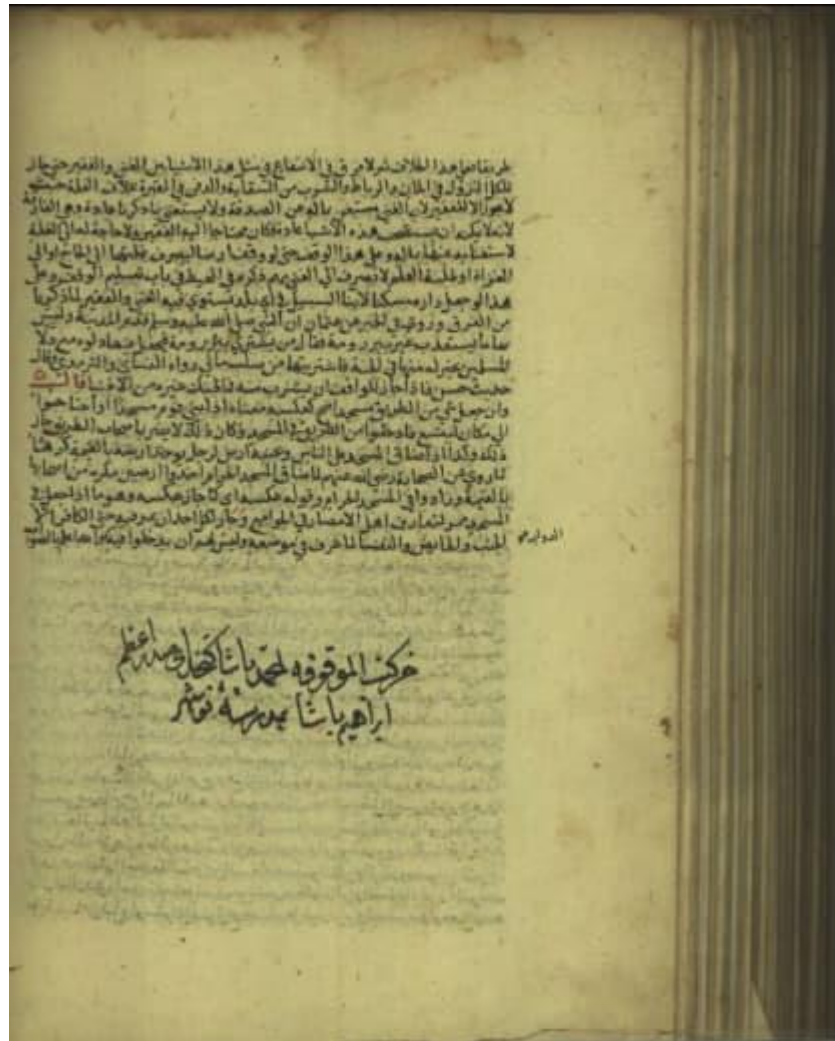 هذا الخلاف ثم لا فرق في الانتفاع في مثل هذا الاشياء بين الغني والفقير حتى جاز
للكل النزول في الخان والرباط والشرب من السقاية والدفن في المقبرة بخلاف الغلة حيث
لا يجوز الا للفقير لان الغني مستغن بماله عن الصدقة ولا يستغني بما ذكرنا عادة وهو الفارق
لانه لا يمكن ان يستصحب هذه الاشياء عادة فكان محتاجا اليه الفقير ولا حاجة له الى الغلة
لاستغنائه عنها بماله وعلى هذا الوقف حتى لو وقف ارضا ليصرف غلتها الى الحاج او الى
الغزاة او طلبة العلم لا تصرف الى الغني منهم ذكره في المحيط في باب تسليم الوقف وعلى
هذا لو جعل داره مسكنا لابناء السبيل في اي بلد يستوي فيه الغني والفقير لما ذكرنا
من الفرق وروي في الخبر عن عثمان ان النبي صلى الله عليه وسلم قدم المدينة وليس
بها ما يستعذب غير بير رومة فقال من يشتري بير رومة فيجعل فيها دلوه مع دلاء
المسلمين بخير له منها في الجنة فاشتريتها من صلب مالي رواه النسائي والترمذي وقال
حديث حسن فاذا جاز للواقف ان يشرب منه فما ظنك بغيره من الاغنيا قال
وان جعل شي من الطريق مسجدا صح كعكسه معناه اذا بنى قوم مسجدا واحتاجوا
الى مكان ليتسع فادخلوا من الطريق في المسجد وكان ذلك لا يضر باصحاب الطريق جاز
ذلك وكذا اذا ضاق المسجد على الناس وبجنبه ارض لرجل يوخذ ارضه بالقيمة كرها
لما روي عن الصحابة رضي الله عنهم لما ضاق المسجد الحرام اخذوا ارضين بكره من اصحابها
بالقيمة وزادوا في المسجد الحرام وقوله كعكسه اي كما جاز عكسه وهو ما اذا جعل في
المسجد ممر لتعارف اهل الامصار في الجوامع وجاز لكل احد ان يمر فيه حتى الكافر الا
الجنب والحايض والنفسا لما عرف في موضعه وليس لهم ان يدخلوا فيه
الموقوفه لمحمد باشا اعظم
ابراهيم باشا بمدرسة نوشهر